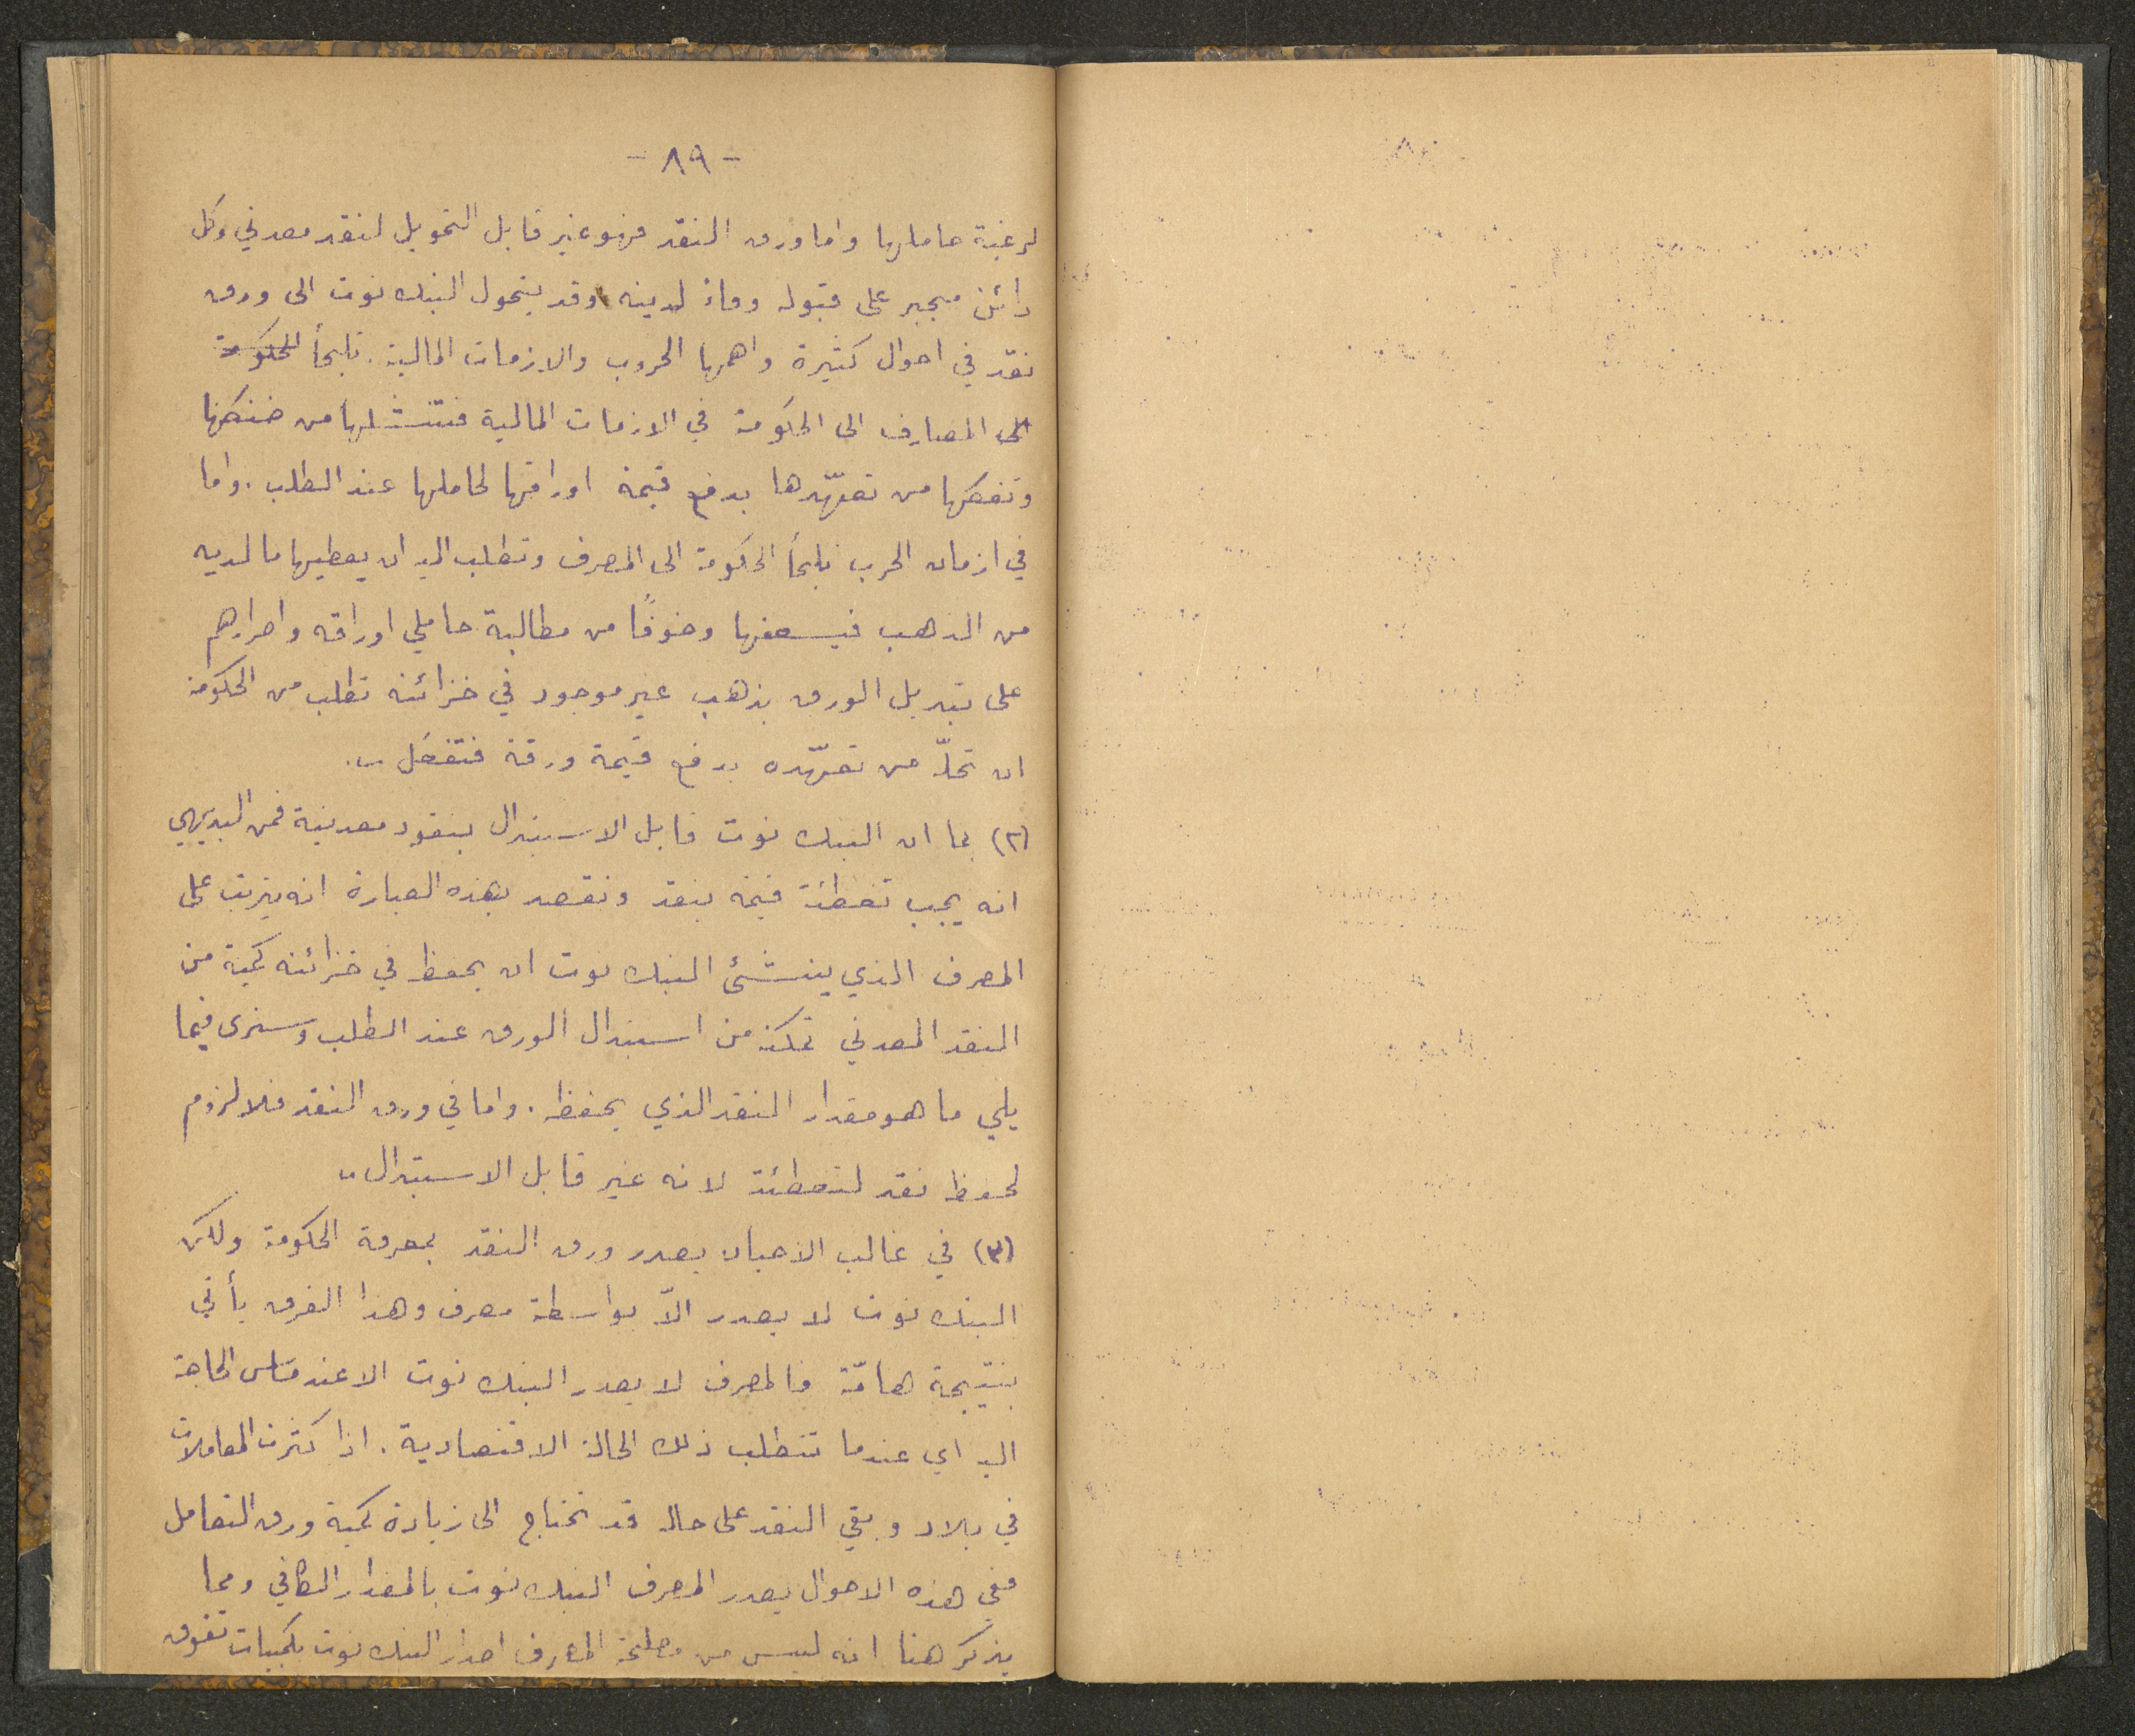 - ٨٩ -
لرغبة حاملها واما ورق النقد فهو غير قابل التحويل لنقد معدني وكل
دائن مجبر على قبوله وفاءً لدينه وقد يتحول البنك نوت الى ورق
نقد في احوال كثيرة واهمها الحروب والازمات المالية. تلجأ الحكومة
الى المصارف الى الحكومة في الازمات المالية فتنتشلها من ضنكها
وتفكها من تعهّدها بدفع قيمة اوراقها لحاملها عند الطلب. واما
في ازمان الحرب تلجأ الحكومة الى المصرف وتطلب اليه ان يعطيها ما لديه
من الذهب فيسعفها وخوفًا من مطالبة حاملي اوراقه واصرارهم
على تبديل الورق بذهب غير موجود في خزائنه تطلب من الحكومة
ان تحلّه من تعهّده بدفع قيمة ورقة فتفعل ..
(٢) بما ان البنك نوت قابل الاستبدال بنقود معدنية فمن البديهي
انه يجب تغطئة قيمة بنقد ونقصد بهذه العبارة انه يترتب على
المصرف الذي ينشئ البنك نوت ان يحفظ في خزائنه كمية من
النقد المعدني تمكنه من استبدال الورق عند الطلب وسنرى فيما
يلي ما هو مقدار النقد الذي يحفظه. واما في ورق النقد فلا لزوم
لحفظ نقد لتغطئة لانه غير قابل الاستبدال ..
(٣) في غالب الاحيان يصدر ورق النقد بمعرفة الحكومة ولكن
البنك نوت لا يصدر الاّ بواسطة مصرف وهذا الفرق يأتي
بنتيجة هامّة فالمصرف لا يصدر البنك نوت الا عند مساس الحاجة
اليه اي عندما تتطلب ذلك الحالة الاقتصادية. اذا كثرت المعاملات
في بلاد وبقي النقد على حاله قد تحتاج الى زيادة كمية ورق التعامل
ففي هذه الاحوال يصدر المصرف البنك نوت بالمقدار الكافي ومما
يذكر هنا انه ليس من مصلحة المصرف اصدار البنك نوت بكميات تفوق